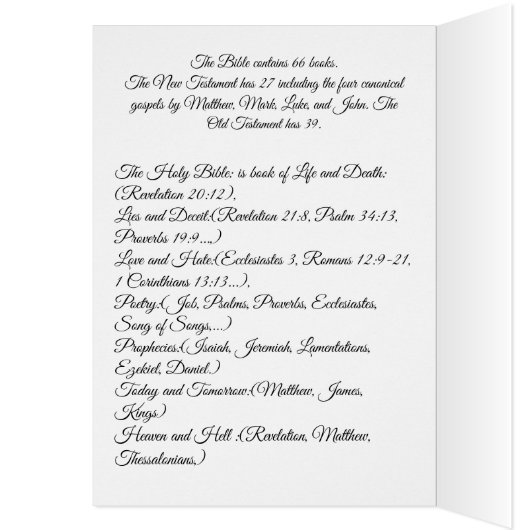 The Bible contains 66 books.
The New Testament has 27 including the four canonical
gospels by Matthew, Mark, Luke, and John. The
Old Testament has 39.
The Holy Bible: is book of Life and Death:
(Revelation 20:12),
Lies and Deceit:(Revelation 21:8, Psalm 34:13,
Proverbs 19:9...,)
Love and Hate:(Ecclesiastes 3, Romans 12:9-21,
1 Corinthians 13:13...),
Poetry:( Job, Psalms, Proverbs, Ecclesiastes,
Song of Songs,...)
Prophecies:(Isaiah, Jeremiah, Lamentations,
Ezekiel, Daniel.)
Today and Tomorrow:(Matthew, James,
Kings)
Heaven and Hell :(Revelation, Matthew,
Thessalonians,)